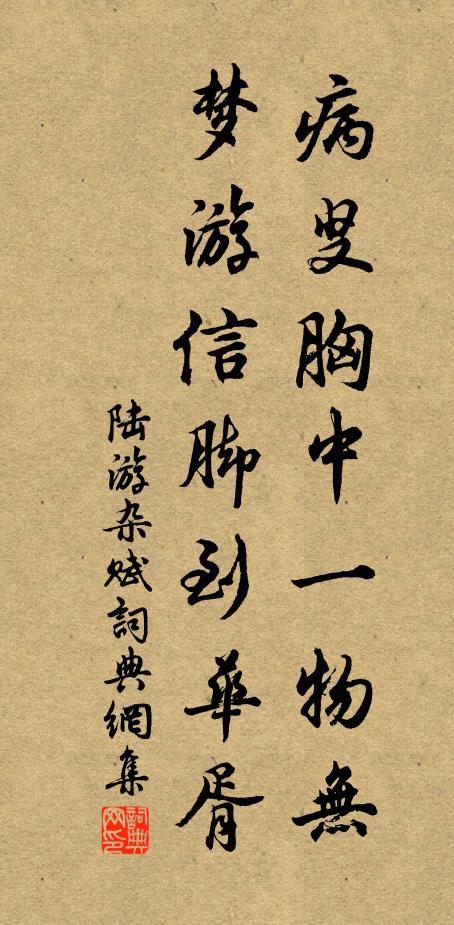 病叟胸中一物無
梦游信脚到華胥
陆游杂赋詞典網集
詞典
网印